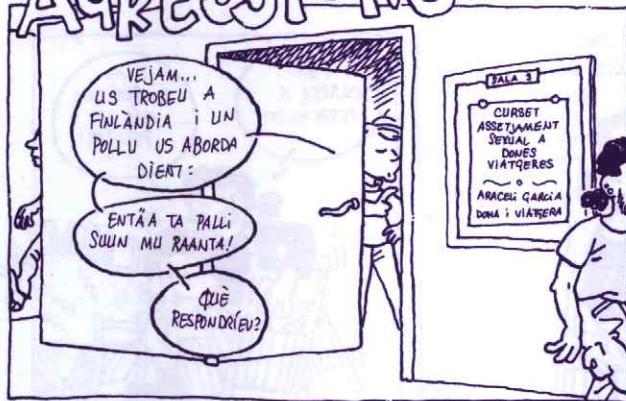 VEJAM...
US TROBEU A
FINLÀNDIA i UN
POLLU US ABORDA
DIENT:
ENTÄA TA PALLI
SUUN MU RAANTA!
QUÈ
RESPONDRÍEU?
SALA 3
CURSET
ASSETJAMENT
SEXUAL A
DONES
VIATGERES
ARACELI GARCIA
DONA i VIATGERA